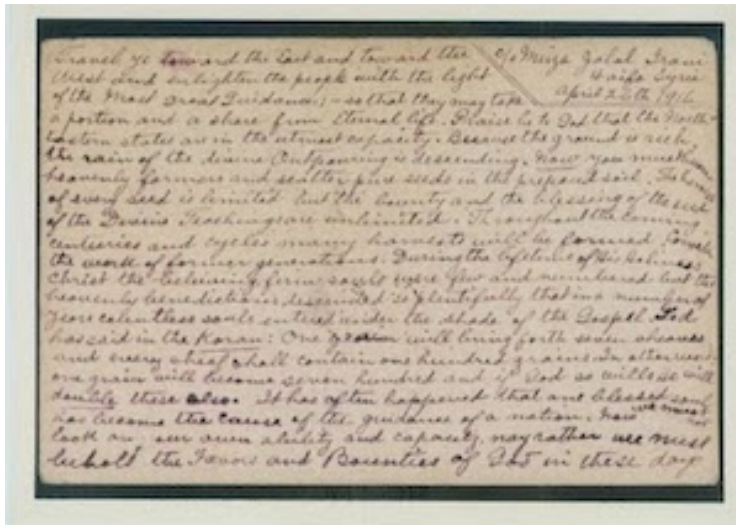 Travel ye toward the East and toward the
c/o Mirza Jalal Irani
West and enlighten the people with the light
Haifa Syria
of the Most Great Guidance; – so that they may take
April 26th 1916
a portion and a share from Eternal life. Praise be to God that the North-
Eastern states are in the utmost capacity. Because the ground is rich,
the rain of the divine Outpouring is descending. Now you must become
heavenly farmers and scatter pure seeds in the prepared soil. The harvest
of every seed is limited but the bounty and the blessing of the seed
of the Divine Teachings are unlimited. Throughout the coming
centuries and cycles many harvests will be formed. Consider
the work of former generations. During the lifetime of His Holiness
Christ the believing firm souls were few and numbered but the
heavenly benedictions descended so plentifully that in a number of
years countless souls entered under the shade of the Gospel. God
has said in the Koran: One grain will bring forth seven sheaves
and every sheaf shall contain one hundred grains. In other words
one grain will become seven hundred and if God so wills He will
double these also. It has often happened that one blessed soul
has become the cause of the guidance of a nation. Now we must not
look on our own ability and capacity, nay rather we must
behold the Favors and Bounties of God in these day